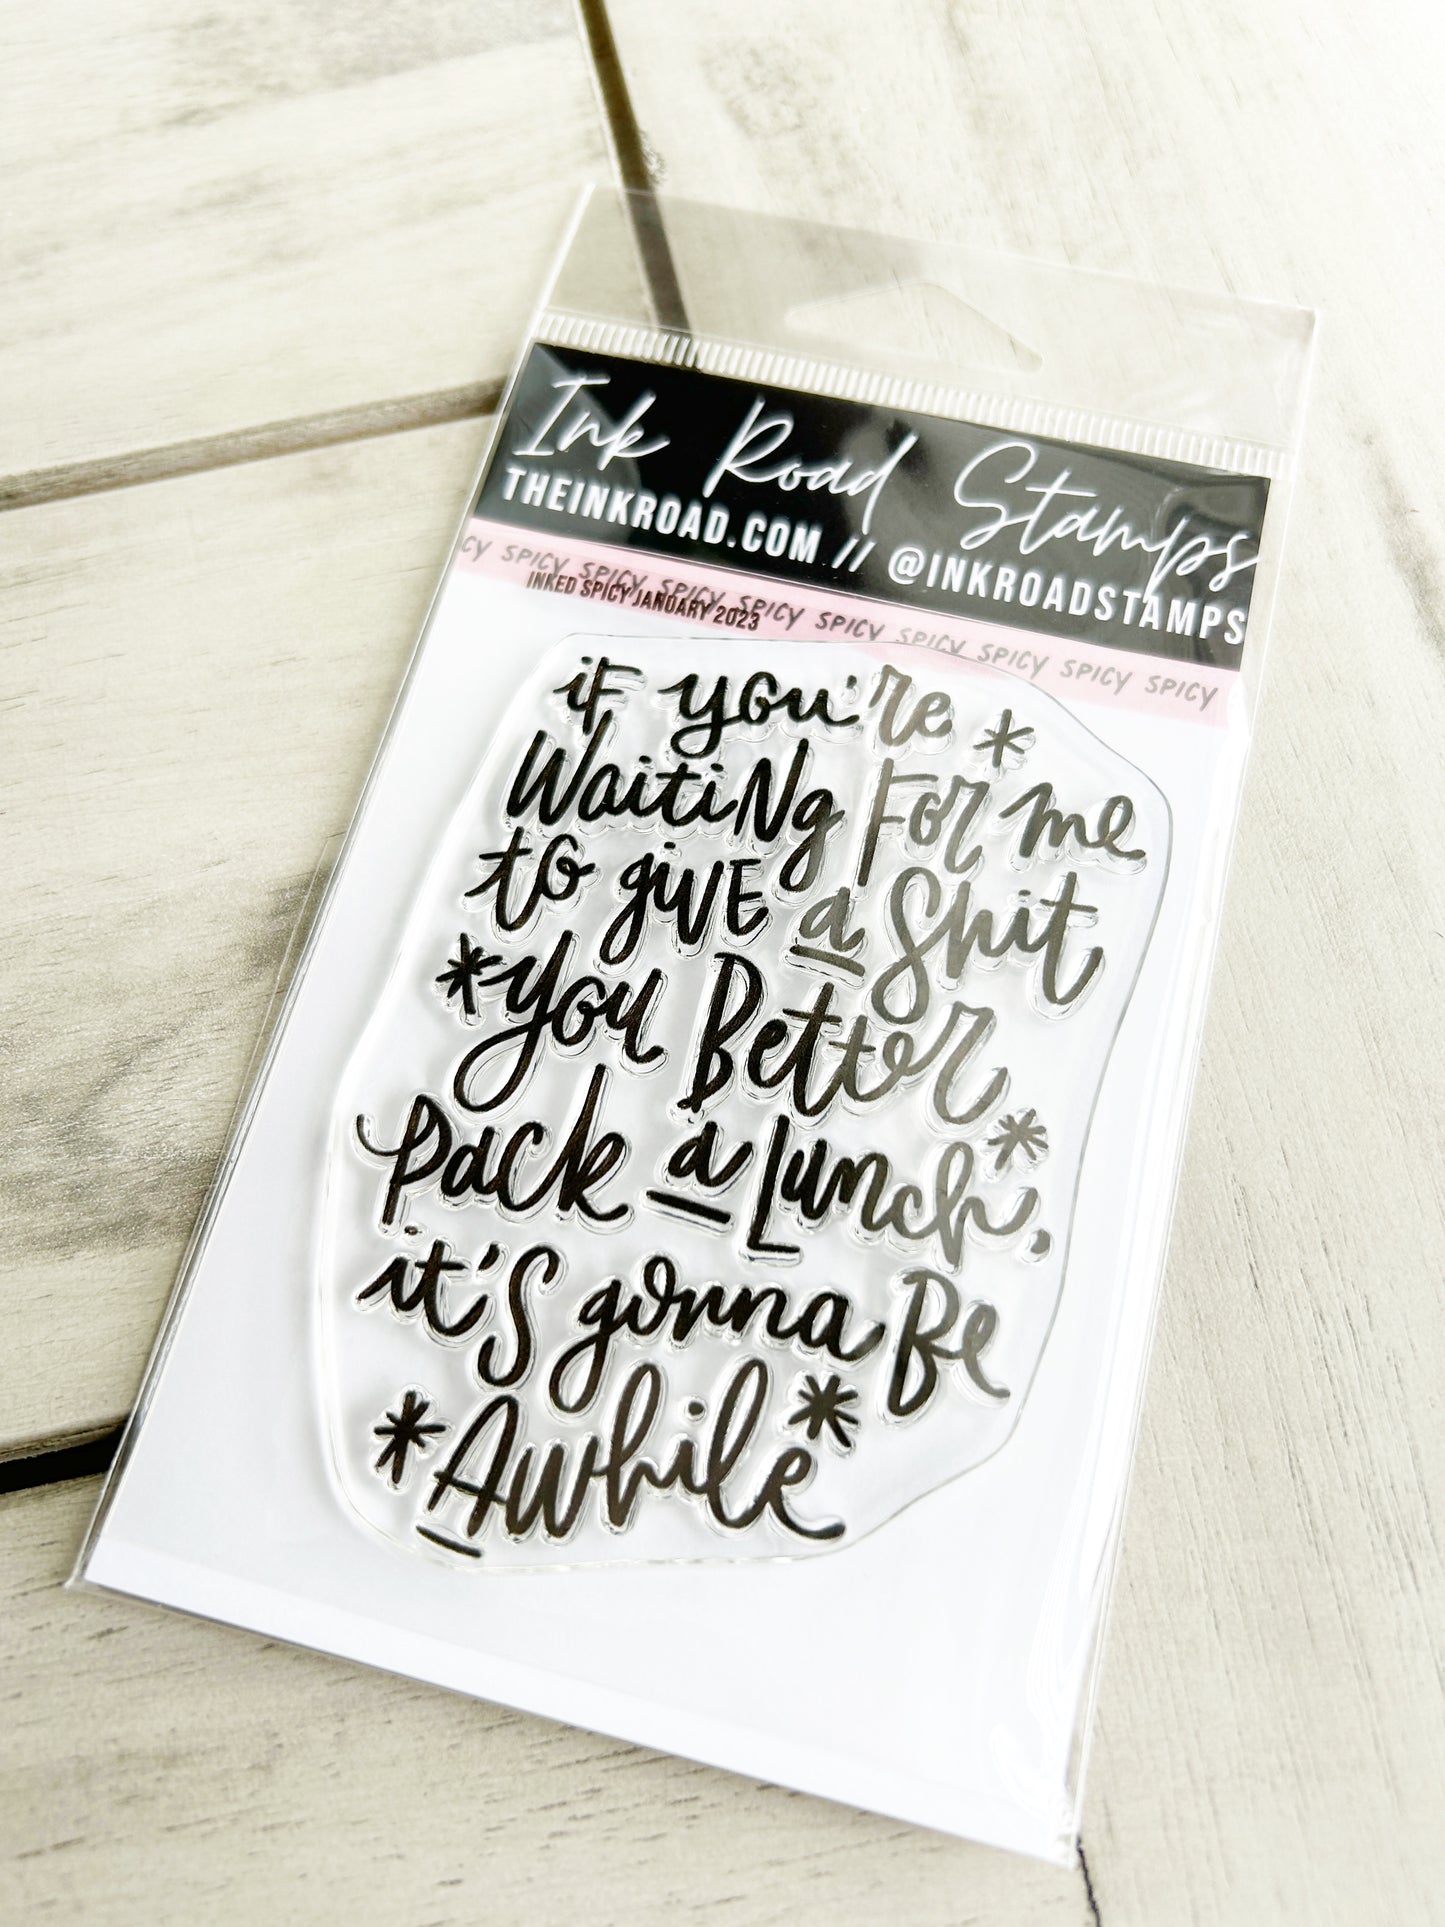 Ink Road Stamps
THEINKROAD.COM // @INKROADSTAMPS
CY SPICY SPICY SPICY SPICY SPICY SPICY SPICY SPICY SPICY
INKED SPICY JANUARY 2023
if you're *
Waiting For me
to give a Shit
*you Better
pack a Lunch, *
it's gonna Be
*Awhile*